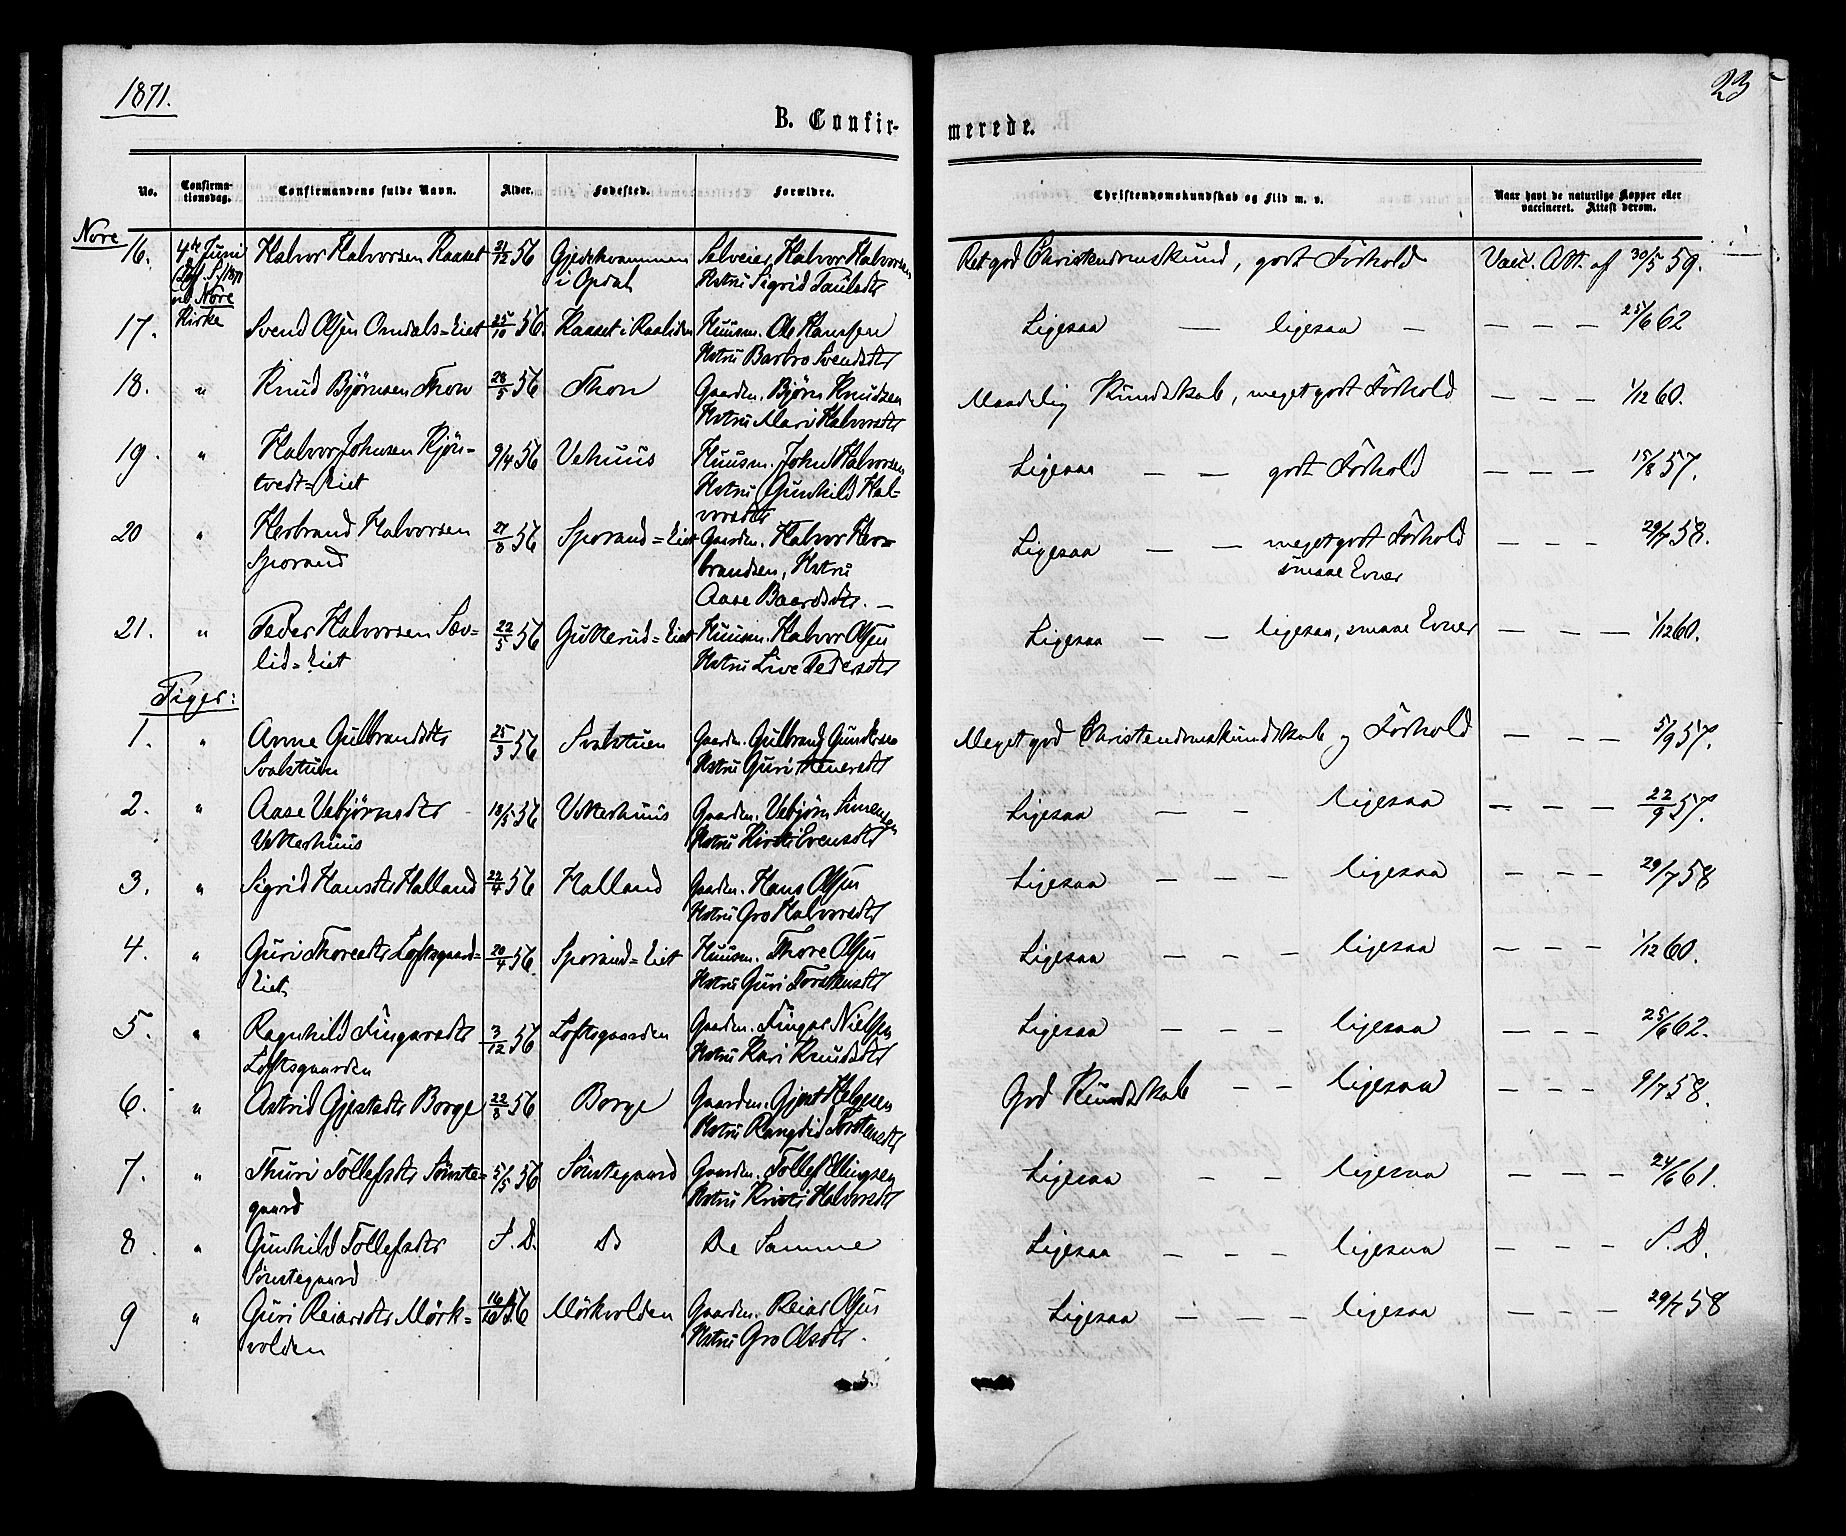 1871.
23
B. Confir-
merede.
No.
Confirma-
tionsdag.
Confirmandens fulde Navn.
Alder.
Fødested.
Forældre.
Christendomskundskab og Flid m. v.
Naar havt de naturlige Kopper eller
vaccineret. Attest derom.
Nore
16. 4de Juni Halvor Halvorsen Raaset 21/12 56 Gjedekvammen Selveier Halvor Halvorsen Ret god Christendomskund, godt Forhold Vacc. Att. af 30/5 59.
1871 i Opdal Hstru Sigrid Paulsdtr
Nore
Kirke
17. Svend Olsen Omdals=Eiet 25/10 56. Raaset i Huusm. Ole Hansen Ligesaa — ligesaa — — — — 25/6 62
Hstru Barbro Svendsdtr
18. " Knud Bjørnsen Thon 28/5 56 Thon Gaardm. Bjørn Knudsen Maadelig Kundskab, meget godt Forhold — — — 1/12 60.
Hstru Mari Halvorsdtr
19. " Halvor Johnsen Kjøn- 9/4 56 Vehuus Huusm. John Halvorsen Ligesaa — — godt Forhold — — — 15/8 57.
tvedt=Eiet Hstru Gunhild Hal-
vorsdtr
20 " Herbrand Halvorsen 27/8 56 Sporand=Eiet Gaardm. Halvor Her- Ligesaa — — meget godt Forhold — — — 29/7 58.
Sporand brandsen, Hstru smaae Evner
Aase Baardsdtr. —
21. " Peder Halvorsen Sæv- 22/5 56 Gutterud=Eiet Huusm. Halvor Olsen Ligesaa — — ligesaa, smaae Evner — — — 1/12 60.
lid=Eiet Hstru Live Pedersdtr
Piger:
1. " Anne Gulbrandsdtr 25/3 56 Svalstuen Gaardm. Gulbrand Gundersen Meget god Christendomskundskab og Forhold — — — 5/9 57.
Svalstuen Hstru Guri
2. " Aase Vebjørnsdtr 18/5 56 Vetterhuus Gaardm. Vebjørn Simensen Ligesaa — — ligesaa — — — 22/9 57.
Vetterhuus Hstru Kirsti Evensdtr
3. " Sigrid Hansdtr Halland 22/4 56 Halland Gaardm. Hans Olsen Ligesaa — — — ligesaa — — — 29/7 58
Hstru Gro Halvorsdtr
4. " Guri Thoresdtr Loftsgaard= 20/4 56. Sporand=Eiet Huusm. Thore Olsen Ligesaa — — — ligesaa — — — 1/12 60.
Eiet Hstru Guri Torstensdtr
5. " Ragnhild Fingarsdtr 3/12 56 Loftsgaarden Gaardm. Fingar Nielsen Ligesaa — — — ligesaa — — — 25/6 62.
Loftsgaarden Hstru Kari Knudsdtr
6. " Astrid Gjestsdtr Borge 22/8 56 Borge Gaardm. Gjest Helgesen God Kundskab — — ligesaa — — — 9/7 58.
Hstru Rangdid Torstensdtr
7. " Thuri Tollefsdtr Sønste- 5/5 56 Sønstegaard Gaardm. Tollef Ellingsen Ligesaa — — ligesaa — — — 24/6 61.
gaard Hstru Kristi Halvorsdtr
8. " Gunhild Tollefsdtr S. D. Do De Samme Ligesaa — — — ligesaa — — — S. D.
Sønstegaard
9 " Guri Reiarsdtr Mørk= 16/10 56 Mørkvolden Gaardm. Reiar Olsen Ligesaa — — — ligesaa — — — 29/7 58
volden Hstru Gro Olsdtr.